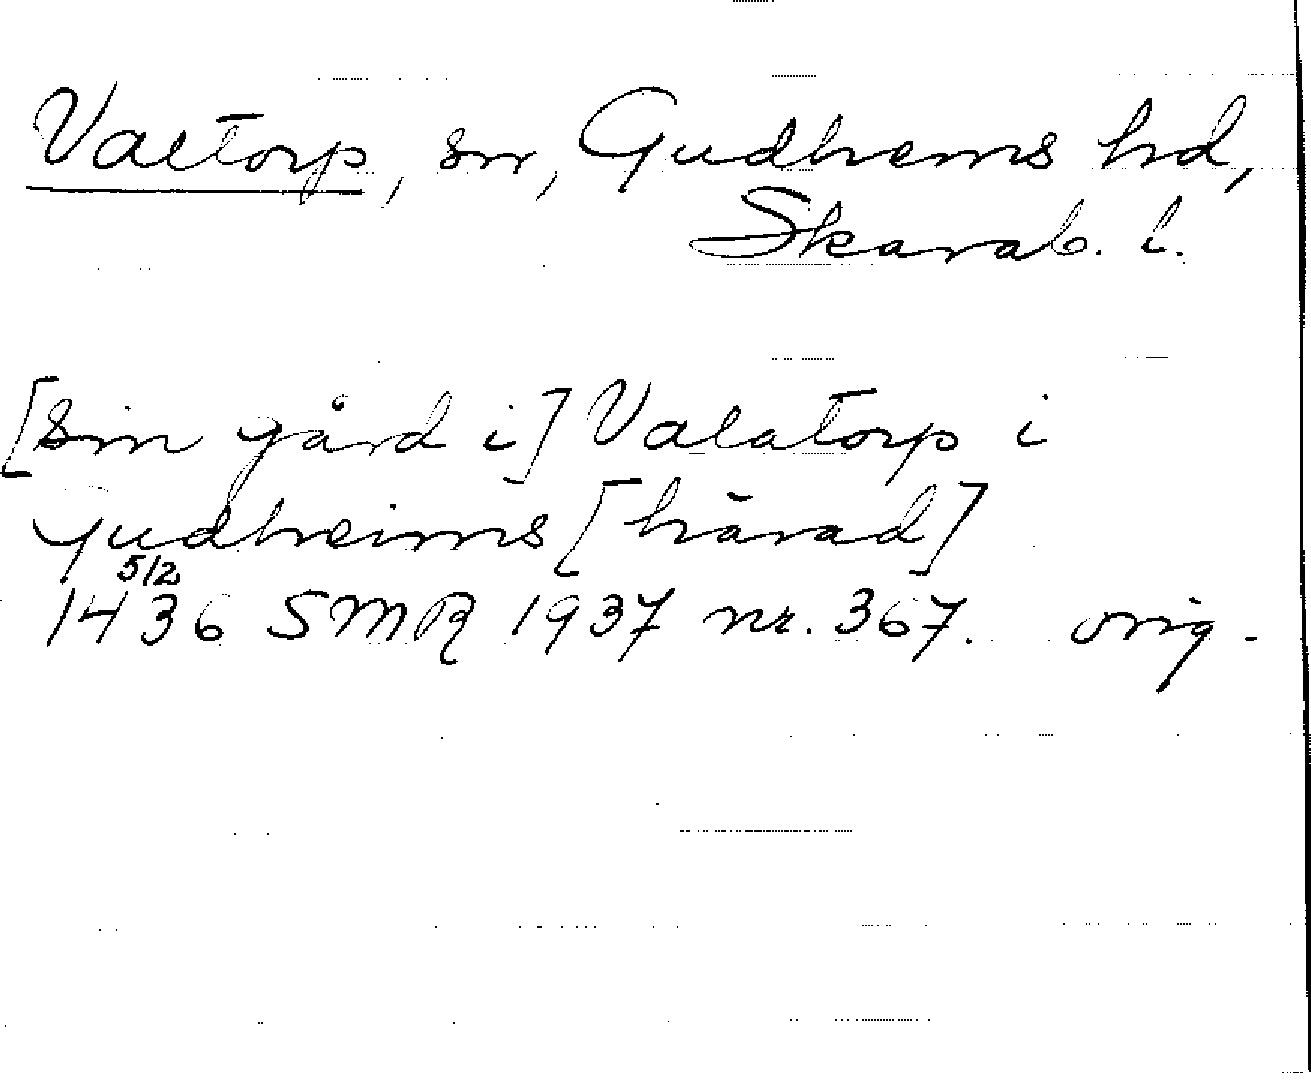 Valtorp, sn, Gudhems hd,
Skarab. l.
[sin gård i] Valatorp i
Gudheims [härad]
5/2
1436 SMR 1937 nr. 367. orig.